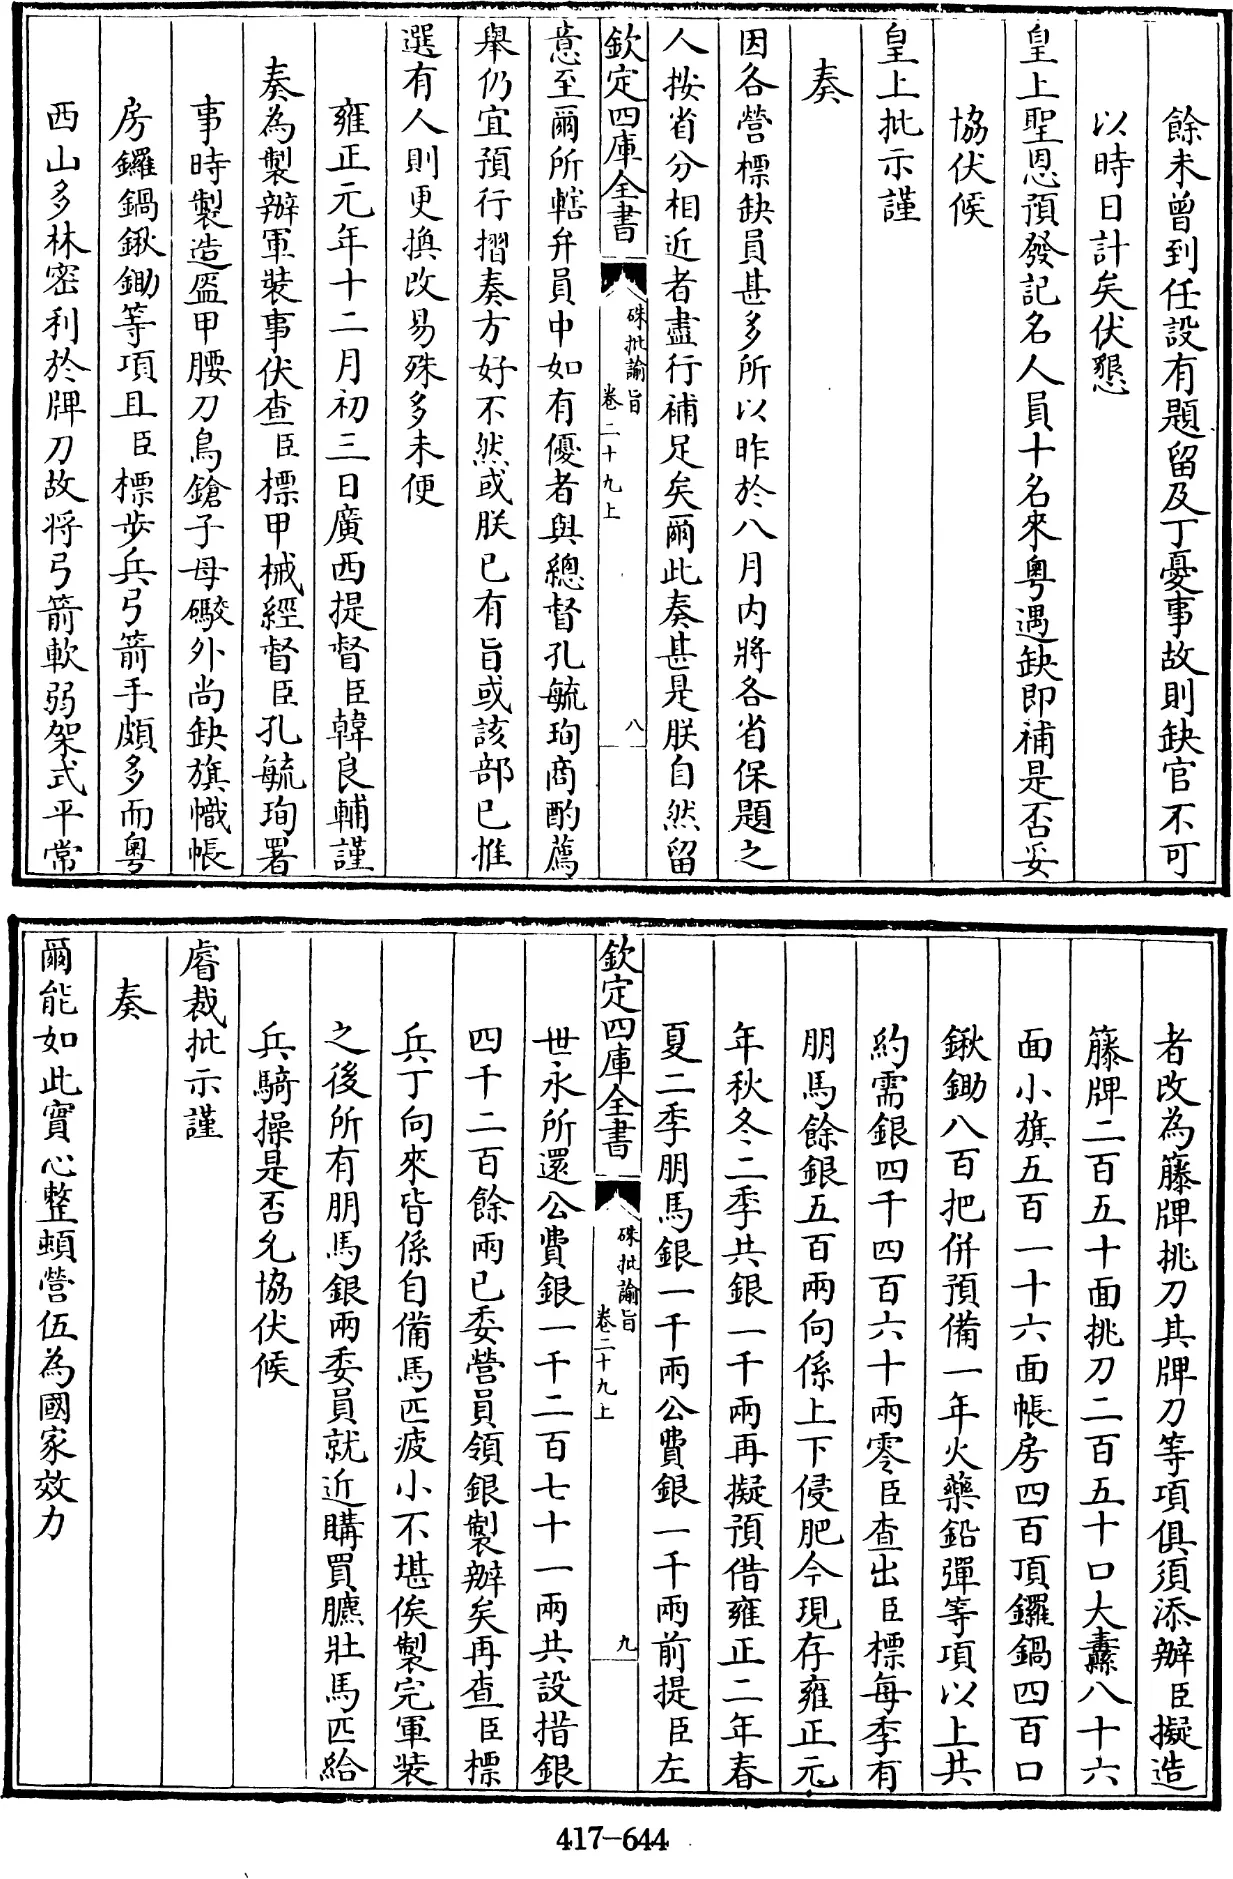 餘未曾到任設有題留及丁憂事故則缺官不可
以時日計矣伏懇
皇上聖恩預發記名人員十名來粵遇缺即補是否妥
協伏候
皇上批示謹
奏
因各營標缺員甚多所以昨於八月内將各省保題之
人按省分相近者盡行補足矣爾此奏甚是朕自然留
欽定四庫全書
硃批諭旨
卷二十九上
八
意至爾所轄弁員中如有優者與總督孔毓珣商酌薦
舉仍宜預行摺奏方好不然或朕已有旨或該部已推
選有人則更換改易殊多未便
雍正元年十二月初三日廣西提督臣韓良輔謹
奏為製辦軍裝事伏查臣標甲械經督臣孔毓珣署
事時製造盔甲腰刀鳥鎗子母礮外尚缺旗幟帳
房鑼鍋鍬鋤等項且臣標步兵弓箭手頗多而粵
西山多林密利於牌刀故将弓箭軟弱架式平常
者改為籐牌挑刀其牌刀等項俱須添辦臣擬造
籐牌二百五十面挑刀二百五十口大纛八十六
面小旗五百一十六面帳房四百頂鑼鍋四百口
鍬鋤八百把併預備一年火藥鉛彈等項以上共
約需銀四千四百六十兩零臣查出臣標每季有
朋馬餘銀五百兩向係上下侵肥今現存雍正元
年秋冬二季共銀一千兩再擬預借雍正二年春
夏二季朋馬銀一千兩公費銀一千兩前提臣左
欽定四庫全書
硃批諭旨
卷二十九上
九
世永所還公費銀一千二百七十一兩共設措銀
四千二百餘兩已委營員領銀製辦矣再查臣標
兵丁向來皆係自備馬匹疲小不堪俟製完軍装
之後所有朋馬銀兩委員就近購買臕壯馬匹給
兵騎操是否允協伏候
睿裁批示謹
奏
爾能如此實心整頓營伍為國家效力
417-644